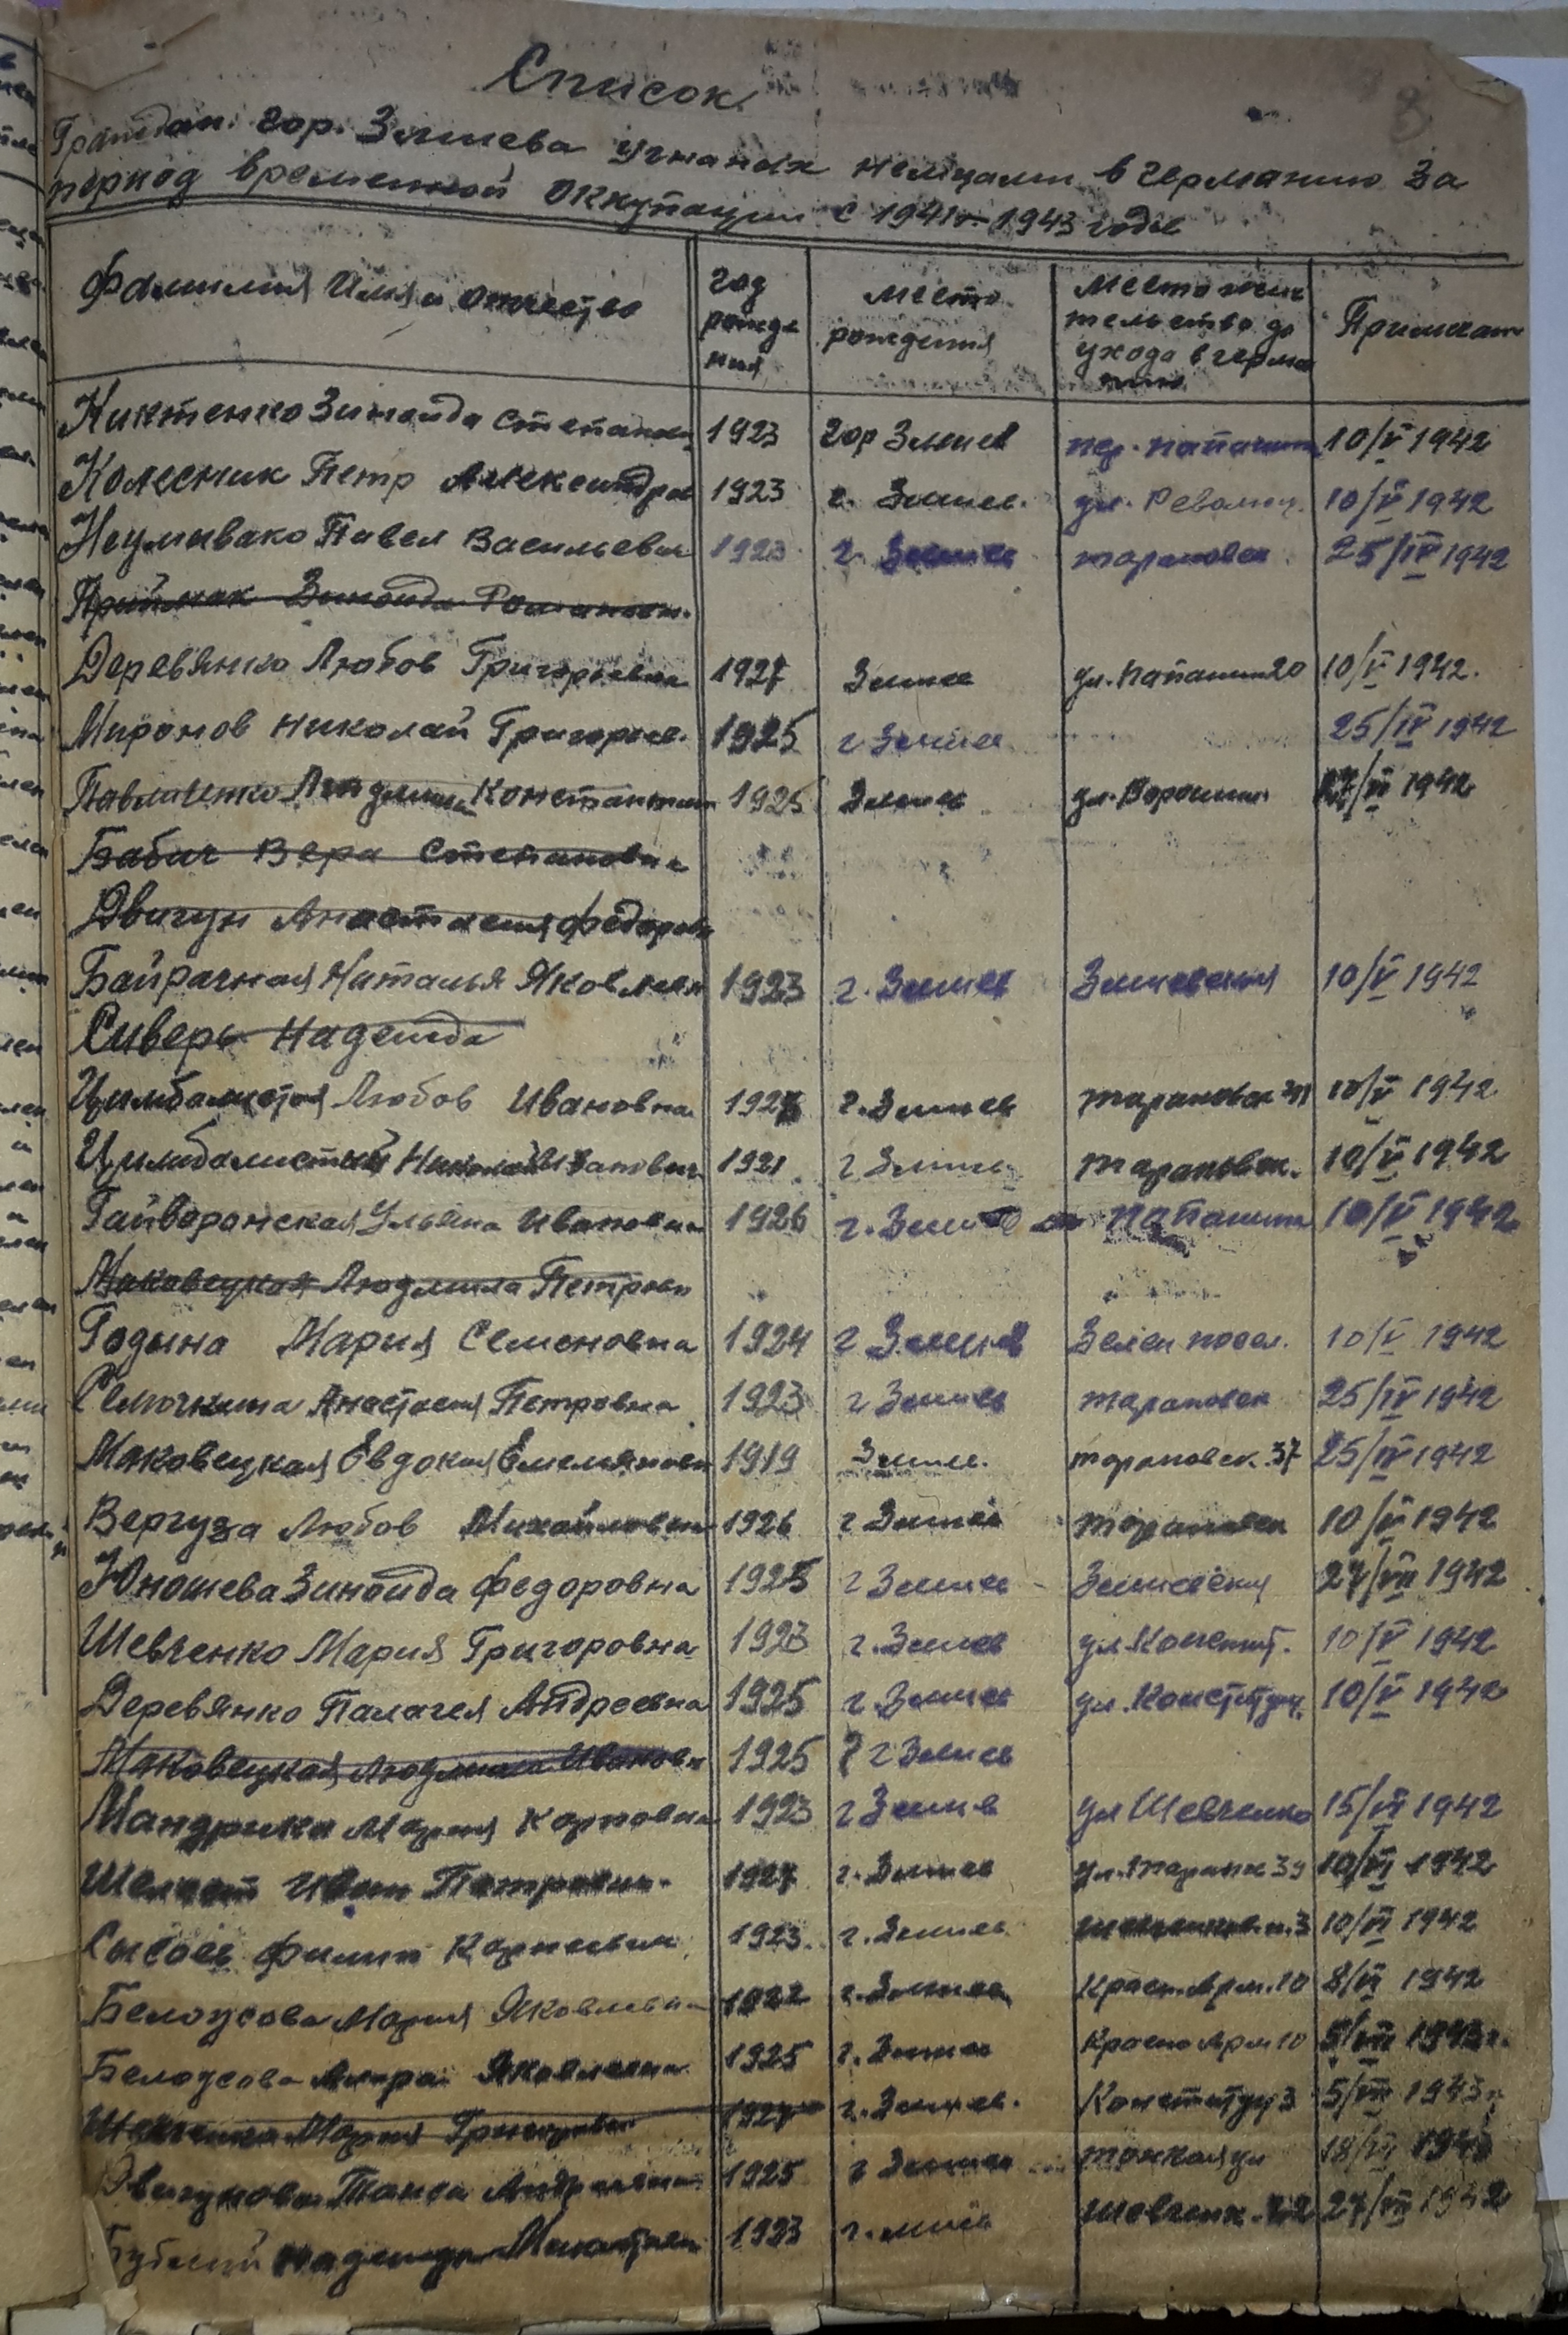 Список
Граждан гор. Змиева угнаных немцами в германию за
период временной оккупации с 1941 – 1943 годы
Фамилия Имя и отчество год рожде ния место рождения место жит тельство до ухода в герма нию Примечан
Киктенко Зинаида Степановн 1923 гор Змиев пер. папанина 10/V 1942
Колесник Петр Александров 1923 г. Змиев. ул. Революц. 10/V 1942
Неумывако Павел Васильевич 1923 г. Змиев тарановск 25/IV 1942
Приймак Зинаида Романовн.
Деревянко Любов Григорьевна 1927 Змиев ул. папанин 20 10/V 1942.
Миронов Николай Григорьев. 1925 г Змиев 25/IV 1942
Павленко Людмила Константин 1925 Змиев ул. Ворошил. 27/VI 1942
Бабич Вера Степановна
Двигун Анастасия Федоровн
Байрачная Наталья Яковлевн 1923 г. Змиев Змиевская 10/V 1942
Сиверь Надежда
Цимбалистая Любов Ивановна г. Змиев тарановск 10/V 1942
Цимбалистый Николай Иванович 1921 г Змиев тарановск. 10/V 1942
Гайворонская Ульяна Ивановна 1926 г. Змиев папанина 10/V 1942
Маковецкая Людмила Петровн
Годына Мария Семеновна 1924 г Змиев Зелен посел. 10/V 1942
Семочкина Анастасия Петровна 1923 г Змиев тарановск 25/IV 1942
Маковецкая Евдокия Емельяновн 1919 Змиев. тарановск. 37 25/IV 1942
Вергуза Любов Михайловна 1926 г Змиев тарановск 10/V 1942
Юношева Зинаида Федоровна 1925 г Змиев Змиевская 27/VII 1942
Шевченко Мария Григоровна 1923 г. Змиев ул. Констит. 10/V 1942
Деревянко Палагея Андреевна 1925 г Змиев ул. Конституц. 10/V 1942
Маковецкая Людмила Ивановн 1925 г Змиев
Мандрика Мария Карповна 1923 г Змиев ул Шевченко 15/VI 1942
Иван Петрович. 1927 г. Змиев ул. Таранк 39 10/VI 1942
Сысоев Филип Карпович 1923. г. Змиев 10/VI 1942
Белоусова Мария Яковлевна 1922 г. Змиев Красн. Арм. 10 8/VI 1942
Белоусова Яковлевна 1925 г. Змиев Красно Арм 10 5/VII 1943 г.
Шевченко Мария Григоровн 1927 г. Змиев. Конституц 3 5/VII 1943 г.
Двигунова Андреевна 1925 г Змиев тонкая ул 18/VI
Надежда 1923 Шевченк. 27/VII 1942